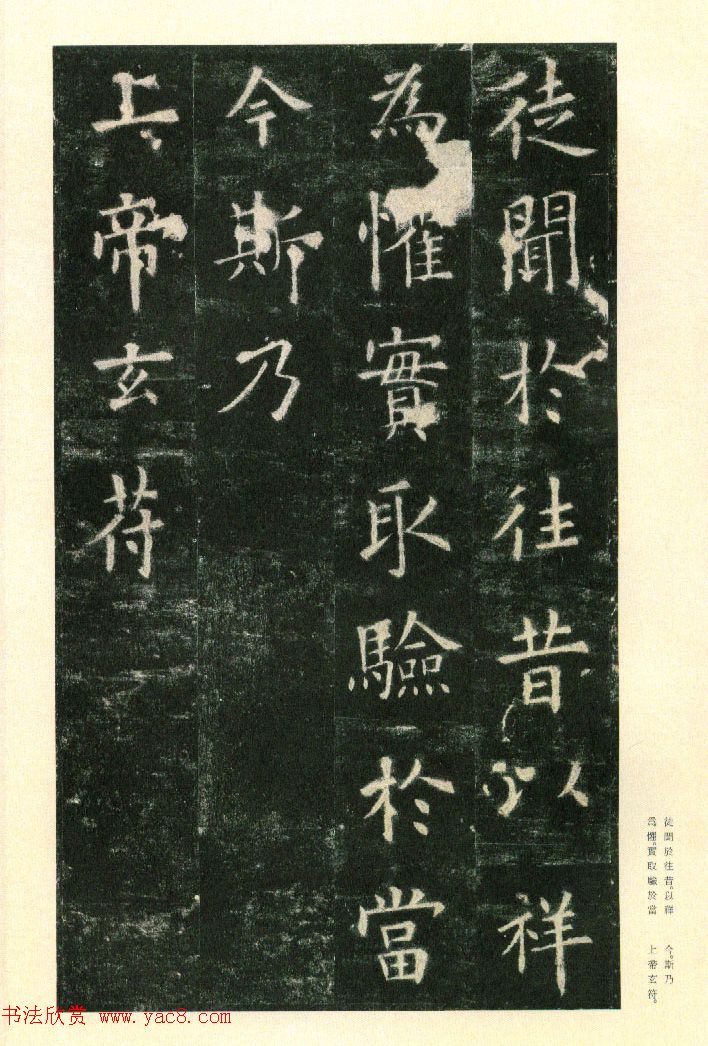 徒聞於往昔以祥
為懽實取驗於當
今斯乃
上帝玄苻
徒聞於往昔。以祥
爲懽。實取驗於當
今。斯乃
上帝玄符。
书法欣赏 www.yac8.com